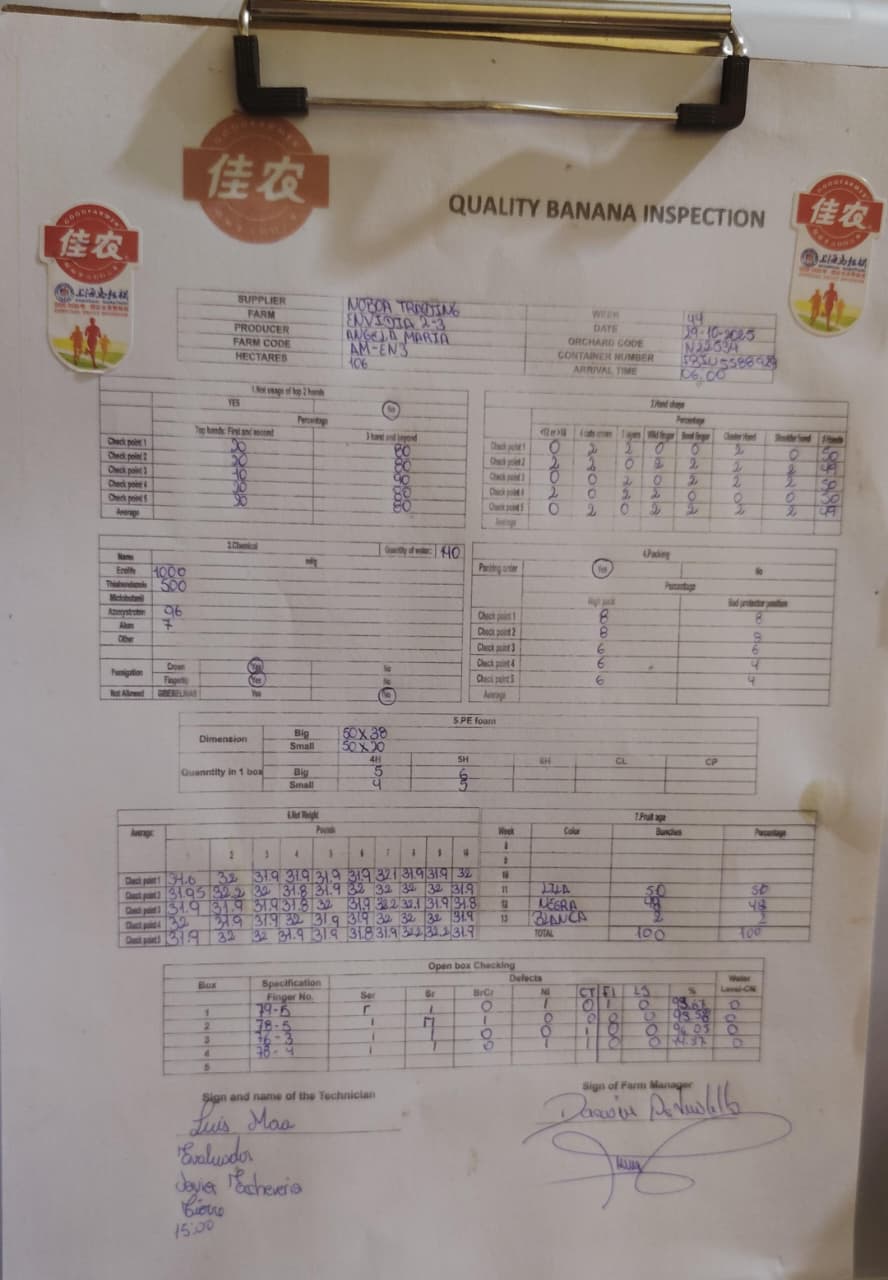 佳农
QUALITY BANANA INSPECTION
佳农
佳农
SUPPLIER NOBOA TRADING WEEK 44
FARM ENVIDIA 2-3 DATE 29-10-2025
PRODUCER ANGELA MARIA ORCHARD CODE N22534
FARM CODE AM-EN3 CONTAINER NUMBER
HECTARES 106 ARRIVAL TIME 06:00
1.Not usage of top 2 hands
YES No
Percentage
Top hands: First and second 3 hand and beyond
Check point 1 20 80
Check point 2 20 80
Check point 3 10 90
Check point 4 20 80
Check point 5 20 80
Average
2.Hand shape
Percentage
Wild finger Bent finger Cluster Hand Shoulder hand
Check point 1 0 2 2 0 0 2 0 50
Check point 2 2 2 0 2 2 2 2 49
Check point 3 0 0 2 0 2 2 2 50
Check point 4 2 0 2 2 0 0 0 50
Check point 5 0 2 0 2 2 2 2 49
Average
3.Chemical Quantity of water: 140
Name mlg
Ecolife 1000
Thiabendazole 500
Miclobutanil
Azoxystrobin 96
Alum 7
Other
Fumigation Crown Yes No
Fingertip Yes No
Not Allowed GIBERELINAS Yes No
4.Packing
Packing order Yes No
Percentage
High pack Bad protector position
Check point 1 8 8
Check point 2 8 8
Check point 3 6 6
Check point 4 6 4
Check point 5 6 4
Average
5.PE foam
Dimension Big 50 X 38
Small 50 X 20
4H 5H 6H CL CP
Quanntity in 1 box Big 5 6
Small 4 5
6.Net Weight
Average: Pounds
1 2 3 4 5 6 7 8 9 10
Check point 1 31.6 32 31.9 31.9 31.9 31.9 32.1 31.9 31.9 32
Check point 2 31.95 32.2 32 31.8 31.9 32 32 32 32 31.9
Check point 3 31.9 31.9 31.9 31.8 32 31.9 32.2 32.1 31.9 31.8
Check point 4 32 31.9 31.9 32 31.9 31.9 32 32 32 31.9
Check point 5 31.9 32 32 31.9 31.9 31.8 31.9 32.2 32.2 31.9
7.Fruit age
Week Color Bunches Percentage
8
9
10
11 LILA 50 50
12 NEGRA 48 48
13 BLANCA 2 2
TOTAL 100 100
Open box Checking
Box Specification Defects Water
Finger No. Ser Sr BrCr NI CT FI LS % Level-CM
1 79-5 r 1 0 1 0 1 0 0
2 78-5 1 1 0 0 0 93.58 0
3 76-3 1 1 0 0 1 0 0 94.05 0
4 78-4 1 1 0 1 1 0 0 0
5
Sign and name of the Technician Sign of Farm Manager
Luis Maa
Evaluador
Javier Echeverria
Cierre
15:00